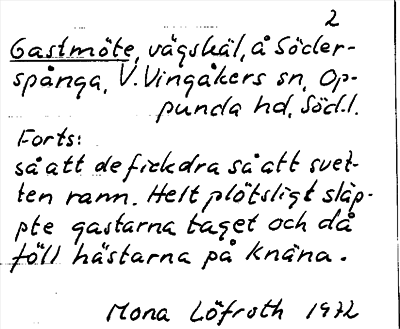 2
Gastmöte, vägskäl, å Söder-
spånga, V. Vingåkers sn, Op-
punda hd, Söd.l.
Forts:
så att de fick dra så att svet-
ten rann. Helt plötsligt släp-
pte gastarna taget och då
föll hästarna på knäna.
Mona Löfroth 1972